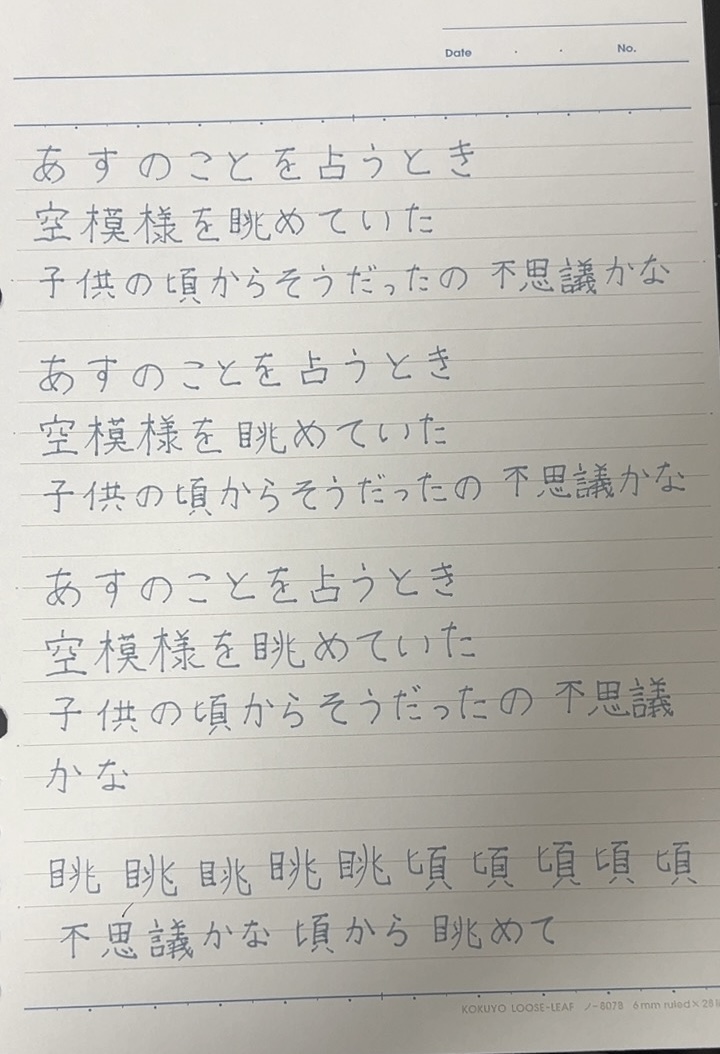 Date . . No.
あすのことを占うとき
空模様を眺めていた
子供の頃からそうだったの 不思議かな
あすのことを占うとき
空模様を眺めていた
子供の頃からそうだったの 不思議かな
あすのことを占うとき
空模様を眺めていた
子供の頃からそうだったの 不思議
かな
眺 眺 眺 眺 眺 頃 頃 頃 頃 頃
不思議かな 頃から 眺めて
KOKUYO LOOSE-LEAF ノ-807B 6mm ruled×28